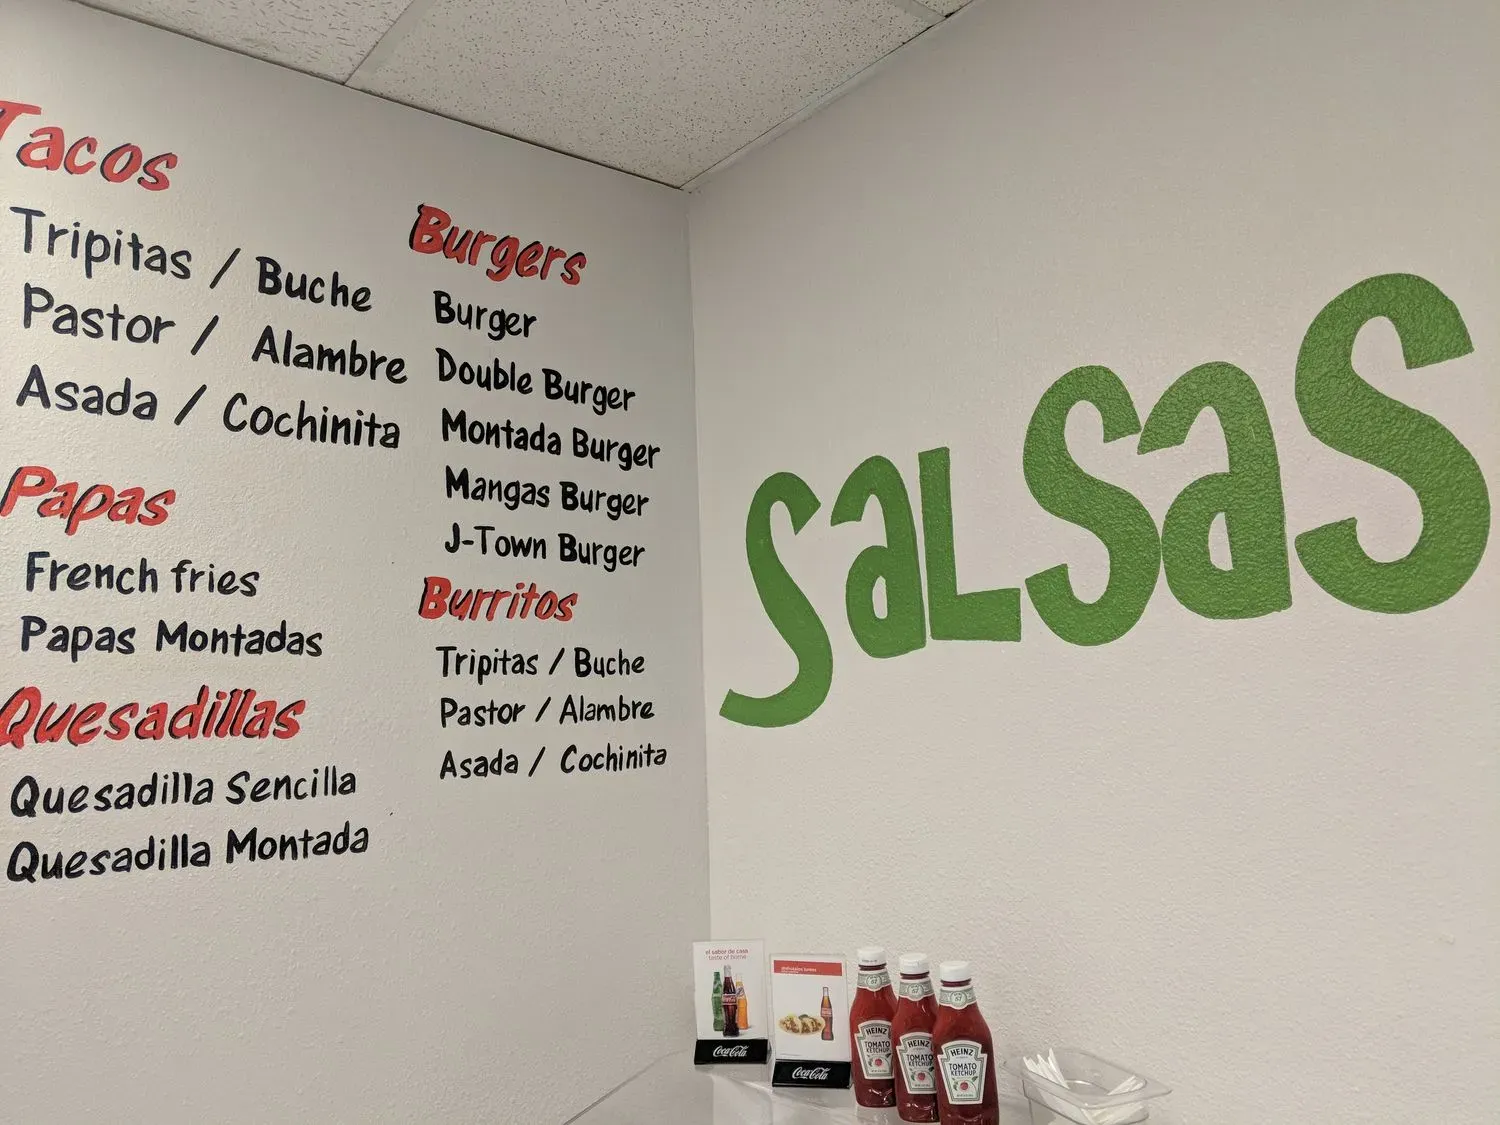 Tacos
Tripitas / Buche
Pastor / Alambre
Asada / Cochinita
Papas
French fries
Papas Montadas
Quesadillas
Quesadilla Sencilla
Quesadilla Montada
Burgers
Burger
Double Burger
Montada Burger
Mangas Burger
J-Town Burger
Burritos
Tripitas / Buche
Pastor / Alambre
Asada / Cochinita
SaLSaS
el sabor de casa
taste of home
Coca-Cola
disfrutalos juntos
Coca-Cola
57
HEINZ
TOMATO
KETCHUP
57
HEINZ
TOMATO
KETCHUP
57
HEINZ
TOMATO
KETCHUP